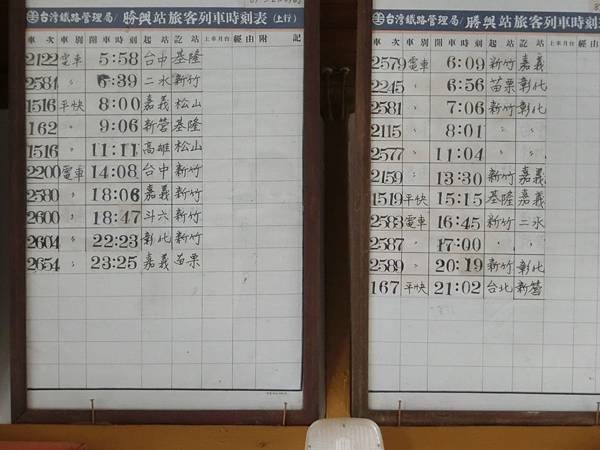 台灣鐵路管理局 勝興站旅客列車時刻表(上行)
車次 車別 開車時刻 起站 訖站 上車月台 經由 附記
2122 電車 5:58 台中 基隆
2584 〃 6:39 二水 新竹
1516 平快 8:00 嘉義 松山
162 〃 9:06 新營 基隆
1516 〃 11:11 高雄 松山
2200 電車 14:08 台中 新竹
2580 〃 18:06 嘉義 新竹
2600 〃 18:47 斗六 新竹
2604 〃 22:23 彰化 新竹
2654 〃 23:25 嘉義 苗栗
台灣鐵路管理局 勝興站旅客列車時刻
車次 車別 開車時刻 起站 訖站 上車月台 經由
2579 電車 6:09 新竹 嘉義
2245 〃 6:56 苗栗 彰化
2581 〃 7:06 新竹 彰化
2115 〃 8:01 〃 〃
2577 〃 11:04 〃 〃
2159 〃 13:30 新竹 嘉義
1519 平快 15:15 基隆 嘉義
2583 電車 16:45 新竹 二水
2587 〃 17:00 〃 〃
2589 〃 20:19 新竹 彰化
167 平快 21:02 台北 新營